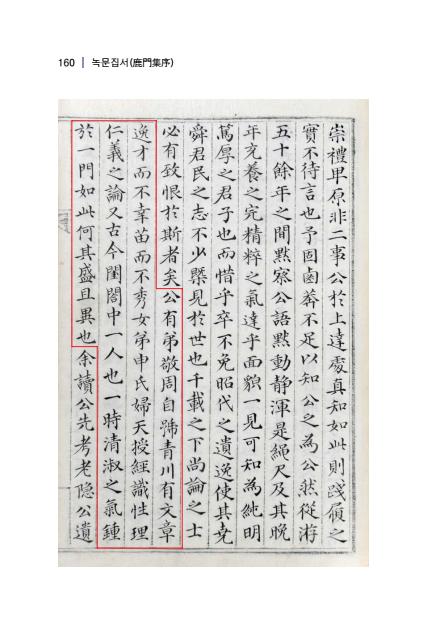 160 | 녹문집서(鹿門集序)
崇禮卑原非二事公於上達處真知如此則踐履之
實不待言也予固鹵莽不足以知公之為公然從游
五十餘年之間黙察公語黙動静渾是繩尺及其晩
年充養之完精粹之氣達乎面貌一見可知為純明
篤厚之君子也而惜乎卒不免昭代之遺逸使其堯
舜君民之志不少槩見於世也千載之下尚論之士
必有致恨於斯者矣公有弟敬周自號青川有文章
逸才而不幸苗而不秀女弟申氏婦天授經識性理
仁義之論又古今閨閤中一人也一時清淑之氣鍾
於一門如此何其盛且異也余讀公先考老隐公遺